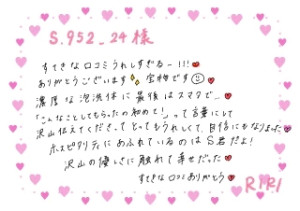 S.952_24様
すてきな口コミうれしすぎるー!!!
ありがとうございます 宝物です
濃厚な泡洗体に最後はスマタで…
「こんなことしてもらったの初めて!」って言葉にして
沢山伝えてくださって とってもうれしくて、自信にもなりました
ホスピタリティにあふれているのはS君だよ!
沢山の優しさに触れて幸せだった
すてきな口コミありがとう
RIRI